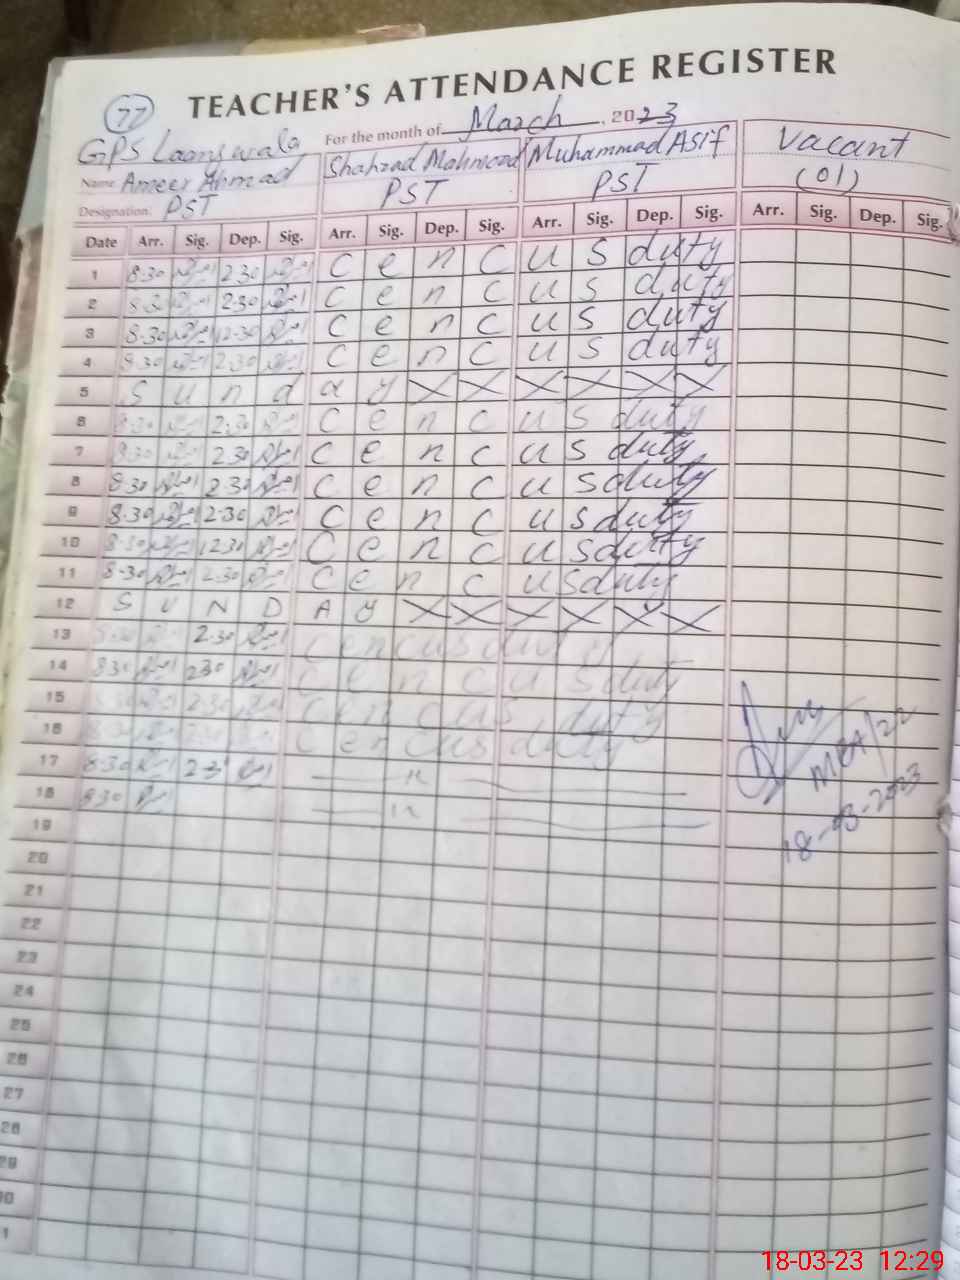 77
TEACHER'S ATTENDANCE REGISTER
For the month of March, 2023
GPS
Name Ameer Ahmad Shahzad Mahmood Muhammad Asif Vacant
Designation: PST PST PST (01)
Date Arr. Sig. Dep. Sig. Arr. Sig. Dep. Sig. Arr. Sig. Dep. Sig. Arr. Sig. Dep. Sig.
1 8.30 2.30 c e n c u s duty
2 8.30 2.30 c e n c u s duty
3 8.30 12.30 c e n c u s duty
4 8.30 2.30 c e n c u s duty
5 S u n d a y X X X X X X
6 8.30 2.30 c e n c u s duty
7 8.30 2.30 c e n c u s duty
8 8.30 2.30 c e n c u s duty
9 8.30 2.30 c e n c u s duty
10 8.30 12.30 c e n c u s duty
11 8.30 2.30 c e n c u s duty
12 S U N D A y X X X X X X
13 8.30 2.30 cencus duty
14 8.30 2.30 c e n c u s duty
15 8.30 2.30 cencus duty
16 8.30 2.30 cencus duty
17 8.30 2.3 — " —
18 8.30 — " —
19
20
21
22
23
24
25
26
27
28
29
30
31
MEA/22
18-03-2023
18-03-23 12:29